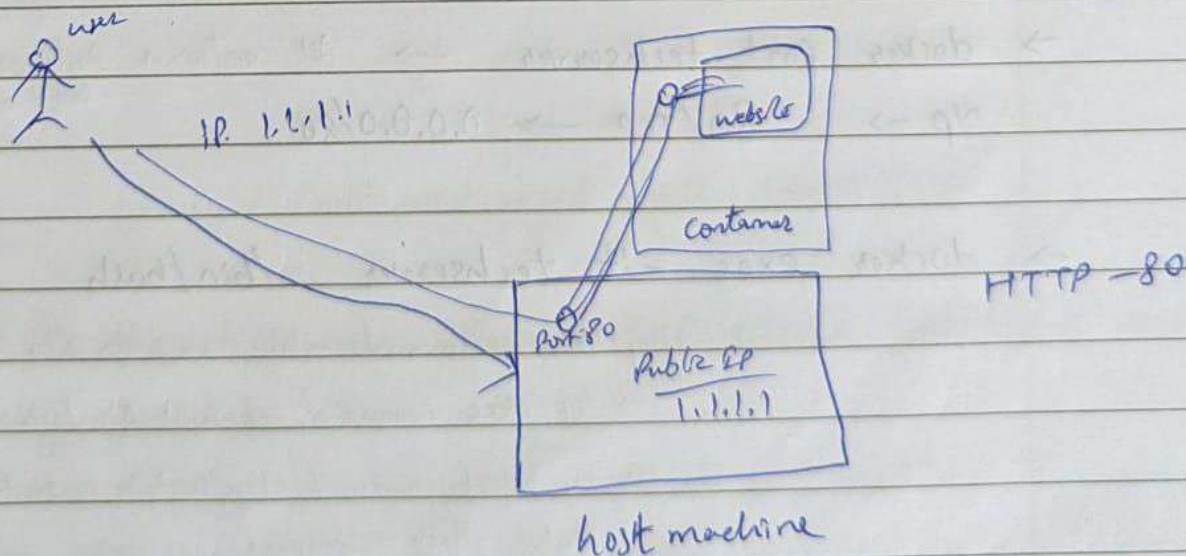 user
IP. 1.1.1.1
website
Container
HTTP -80
Port-80
Public IP
1.1.1.1
host machine